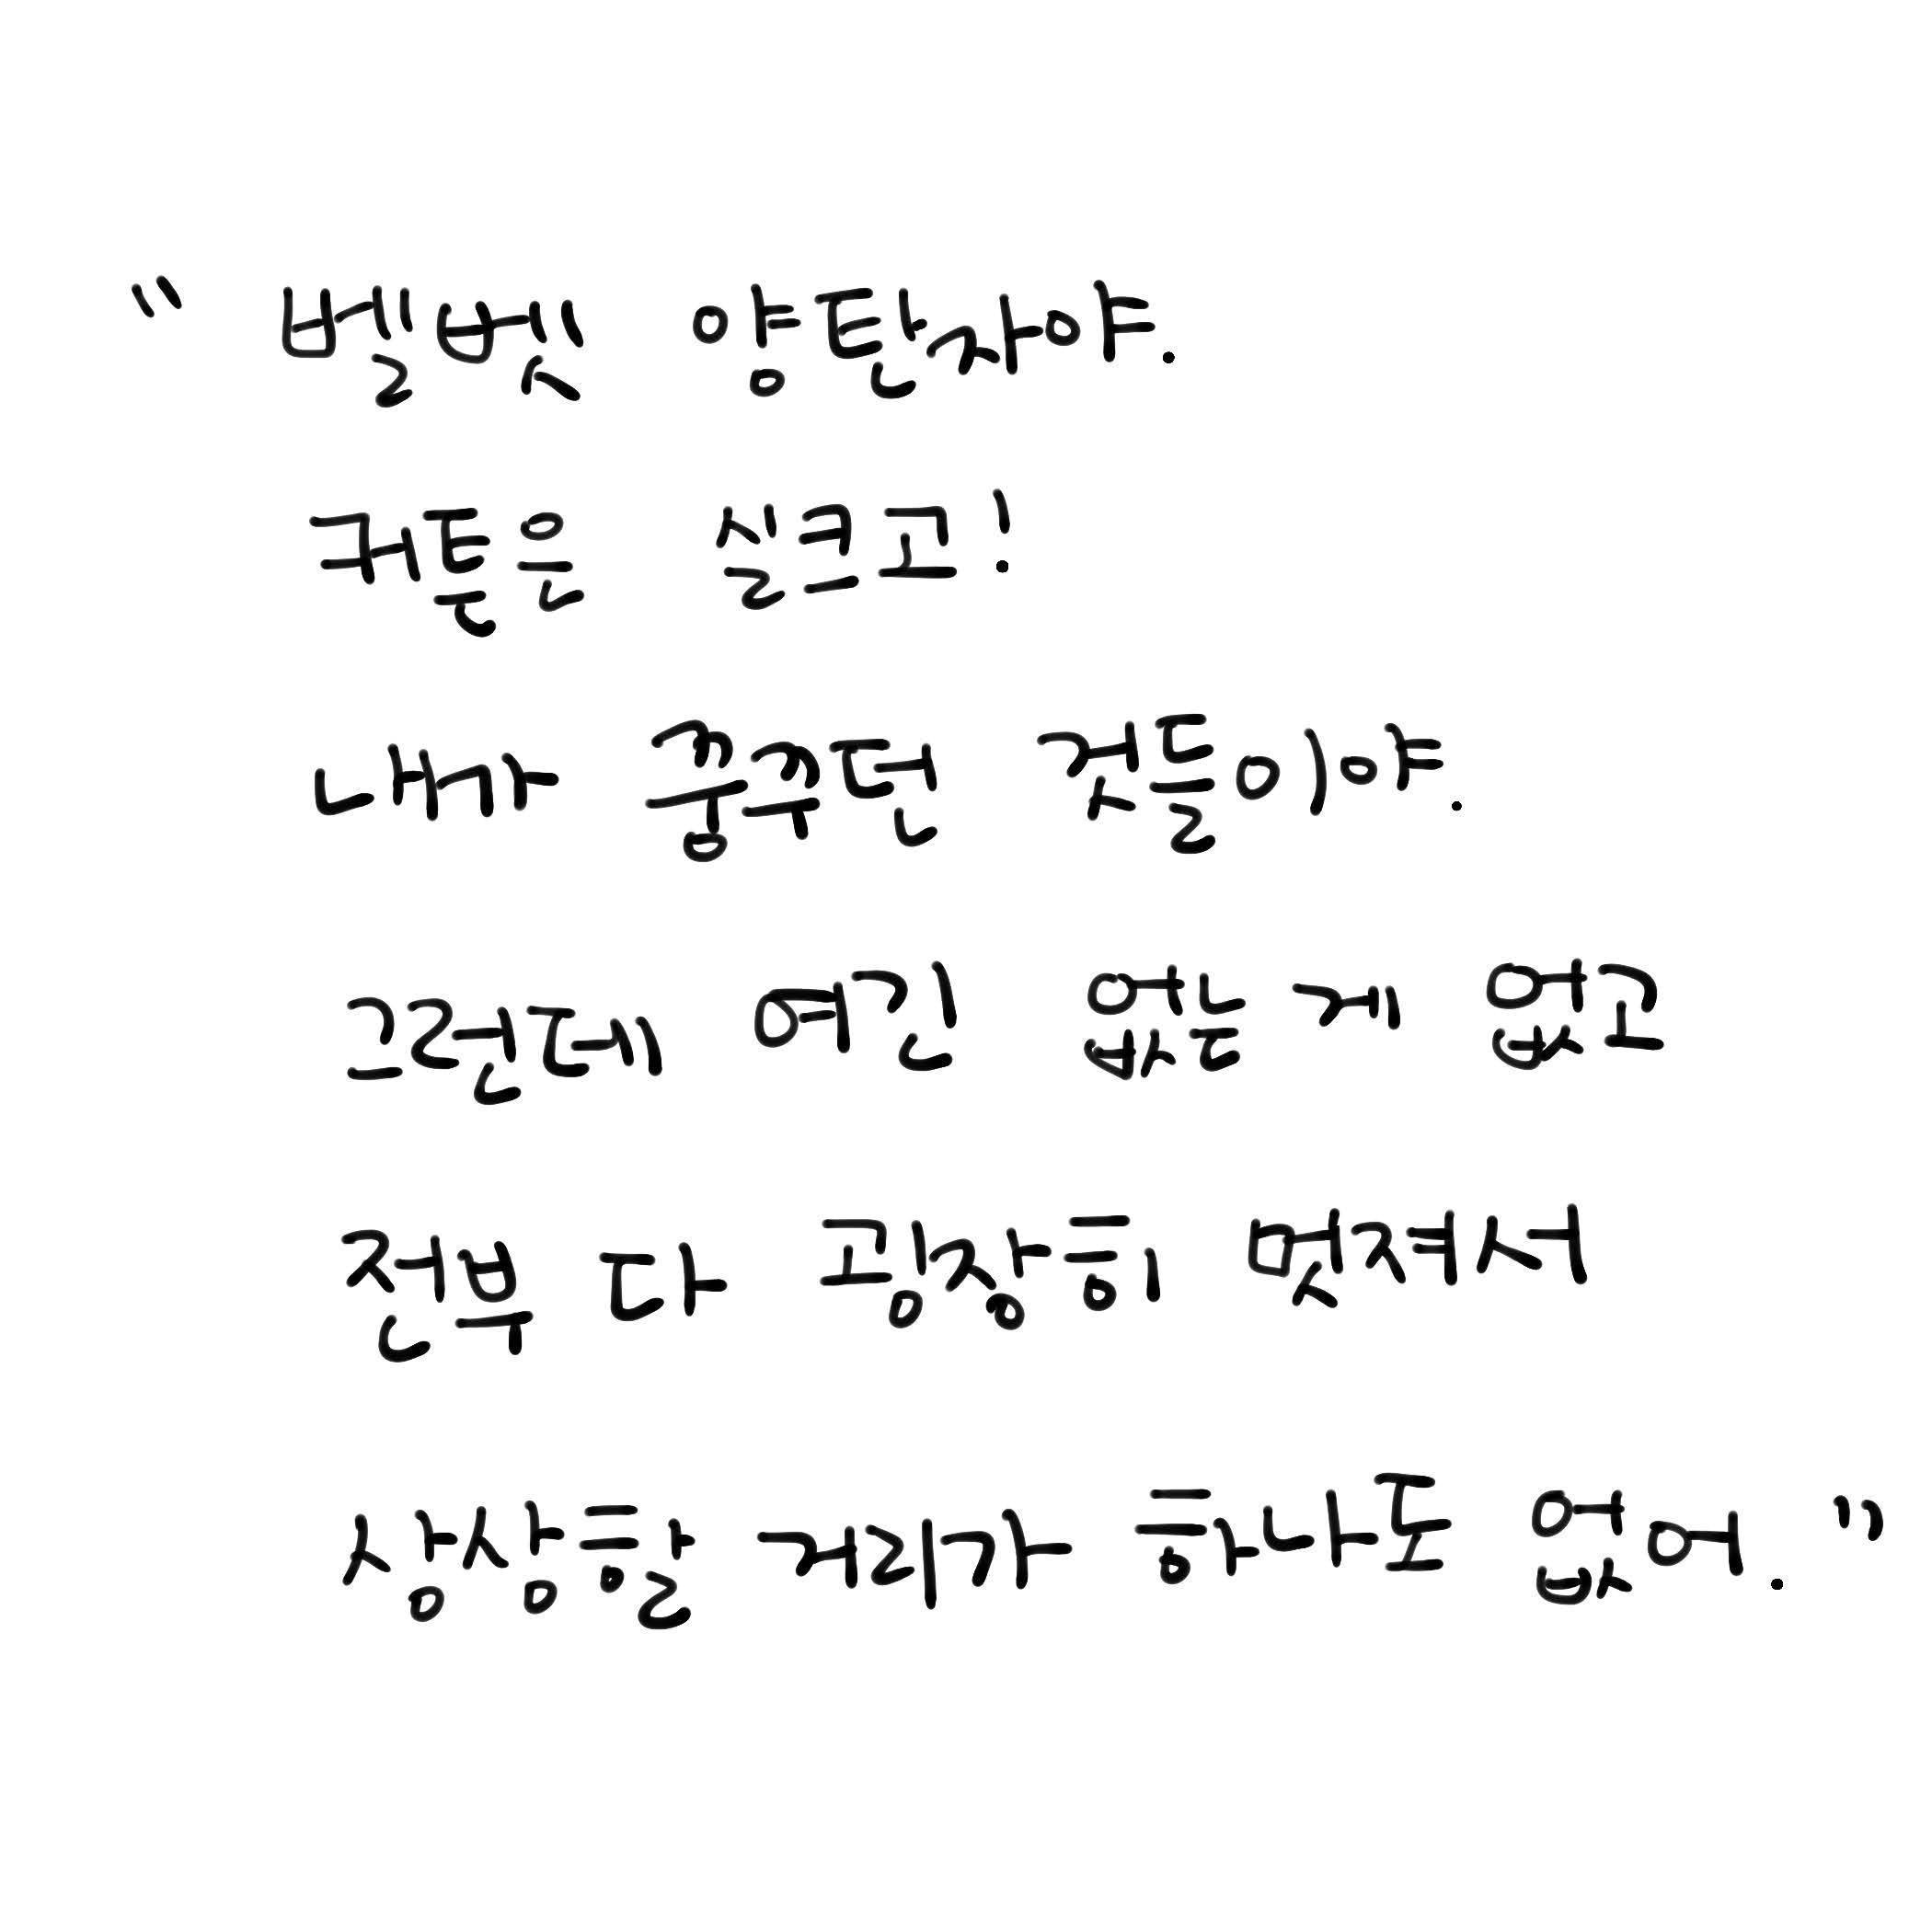 "벨벳 양탄자야.
커튼은 실크고!
내가 꿈꾸던 것들이야.
그런데 여긴 없는 게 없고
전부 다 굉장히 멋져서
상상할 거리가 하나도 없어."